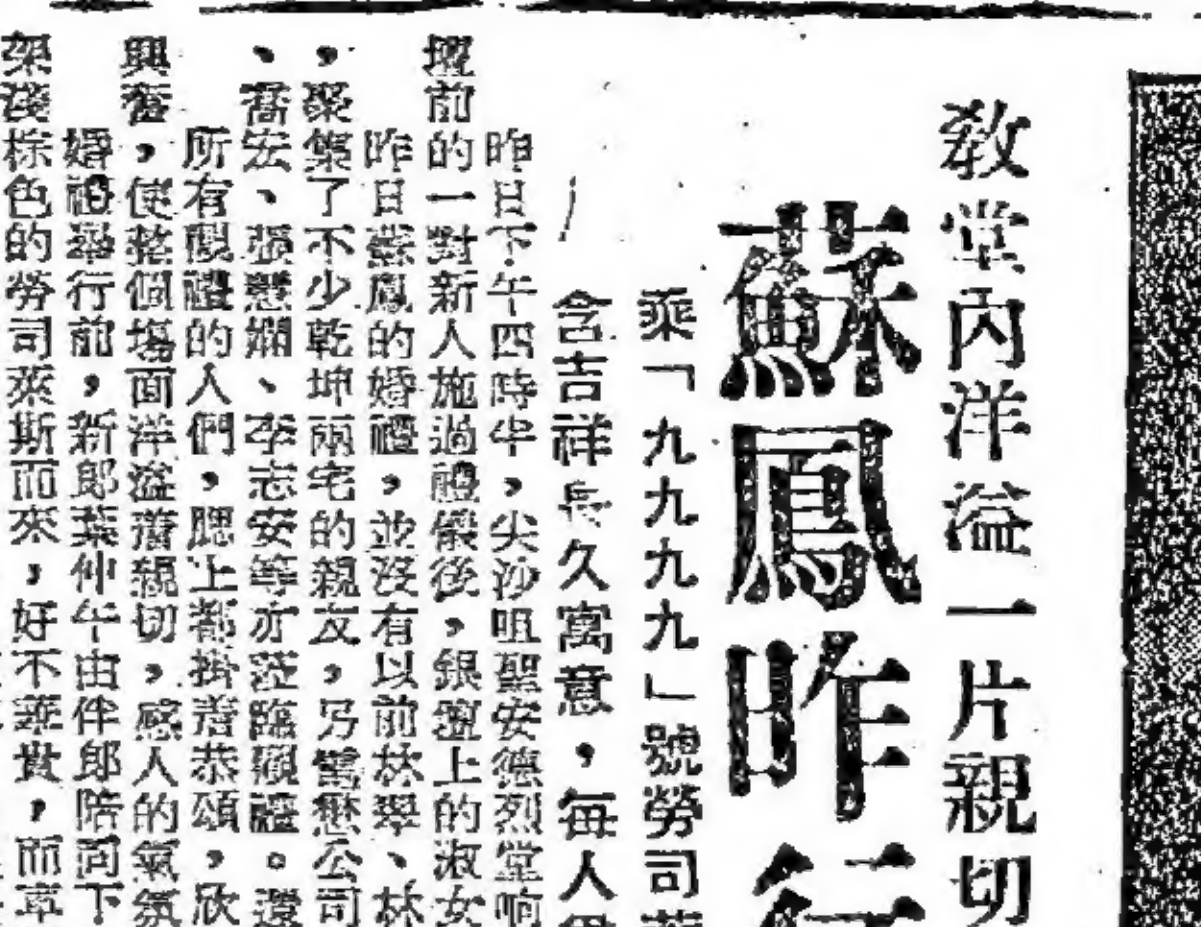 教堂內洋溢一片親切
蘇鳳昨行
乘「九九九九」號勞司萊
含吉祥長久寓意，每人
昨日下午四時半，尖沙咀聖安德烈堂响
壇前的一對新人施過禮儀後，銀壇上的淑女
昨日蘇鳳的婚禮，並沒有以前林翠、林
，聚集了不少乾坤兩宅的親友，另電懋公司
、喬宏、張慧嫻、李志安等亦蒞臨觀禮。還
所有觀禮的人們，腮上都掛着恭頌，欣
興奮，使整個塲面洋溢着親切，感人的氣氛
婚禮舉行前，新郎葉仲午由伴郎陪同下
架淺棕色的勞司萊斯而來，好不華貴，而車